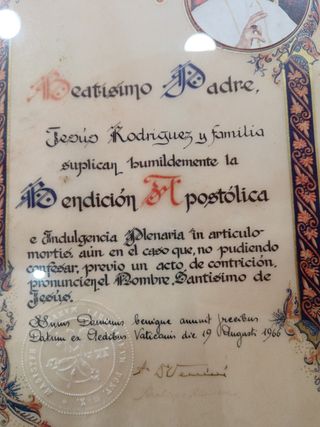 Beatísimo Padre,
Jesús Rodríguez y familia
suplican humildemente la
Bendición Apostólica
e Indulgencia Plenaria in articulo
mortis, aún en el caso que, no pudiendo
confesar, previo un acto, de contrición,
pronuncien el Nombre Santísimo de
Jesús.
Ssmus Dominus benigne annuit precibus
Datum ex Aedibus Vaticanis die 19 Augusti 1966